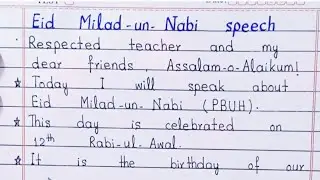 Eid Milad-un-Nabi speech
Respected teacher and my
dear friends, Assalam-o-Alaikum!
★ Today I will speak about
Eid Milad-un-Nabi (PBUH).
★ This day is celebrated on
12th Rabi-ul-Awal.
★ It is the birthday of our